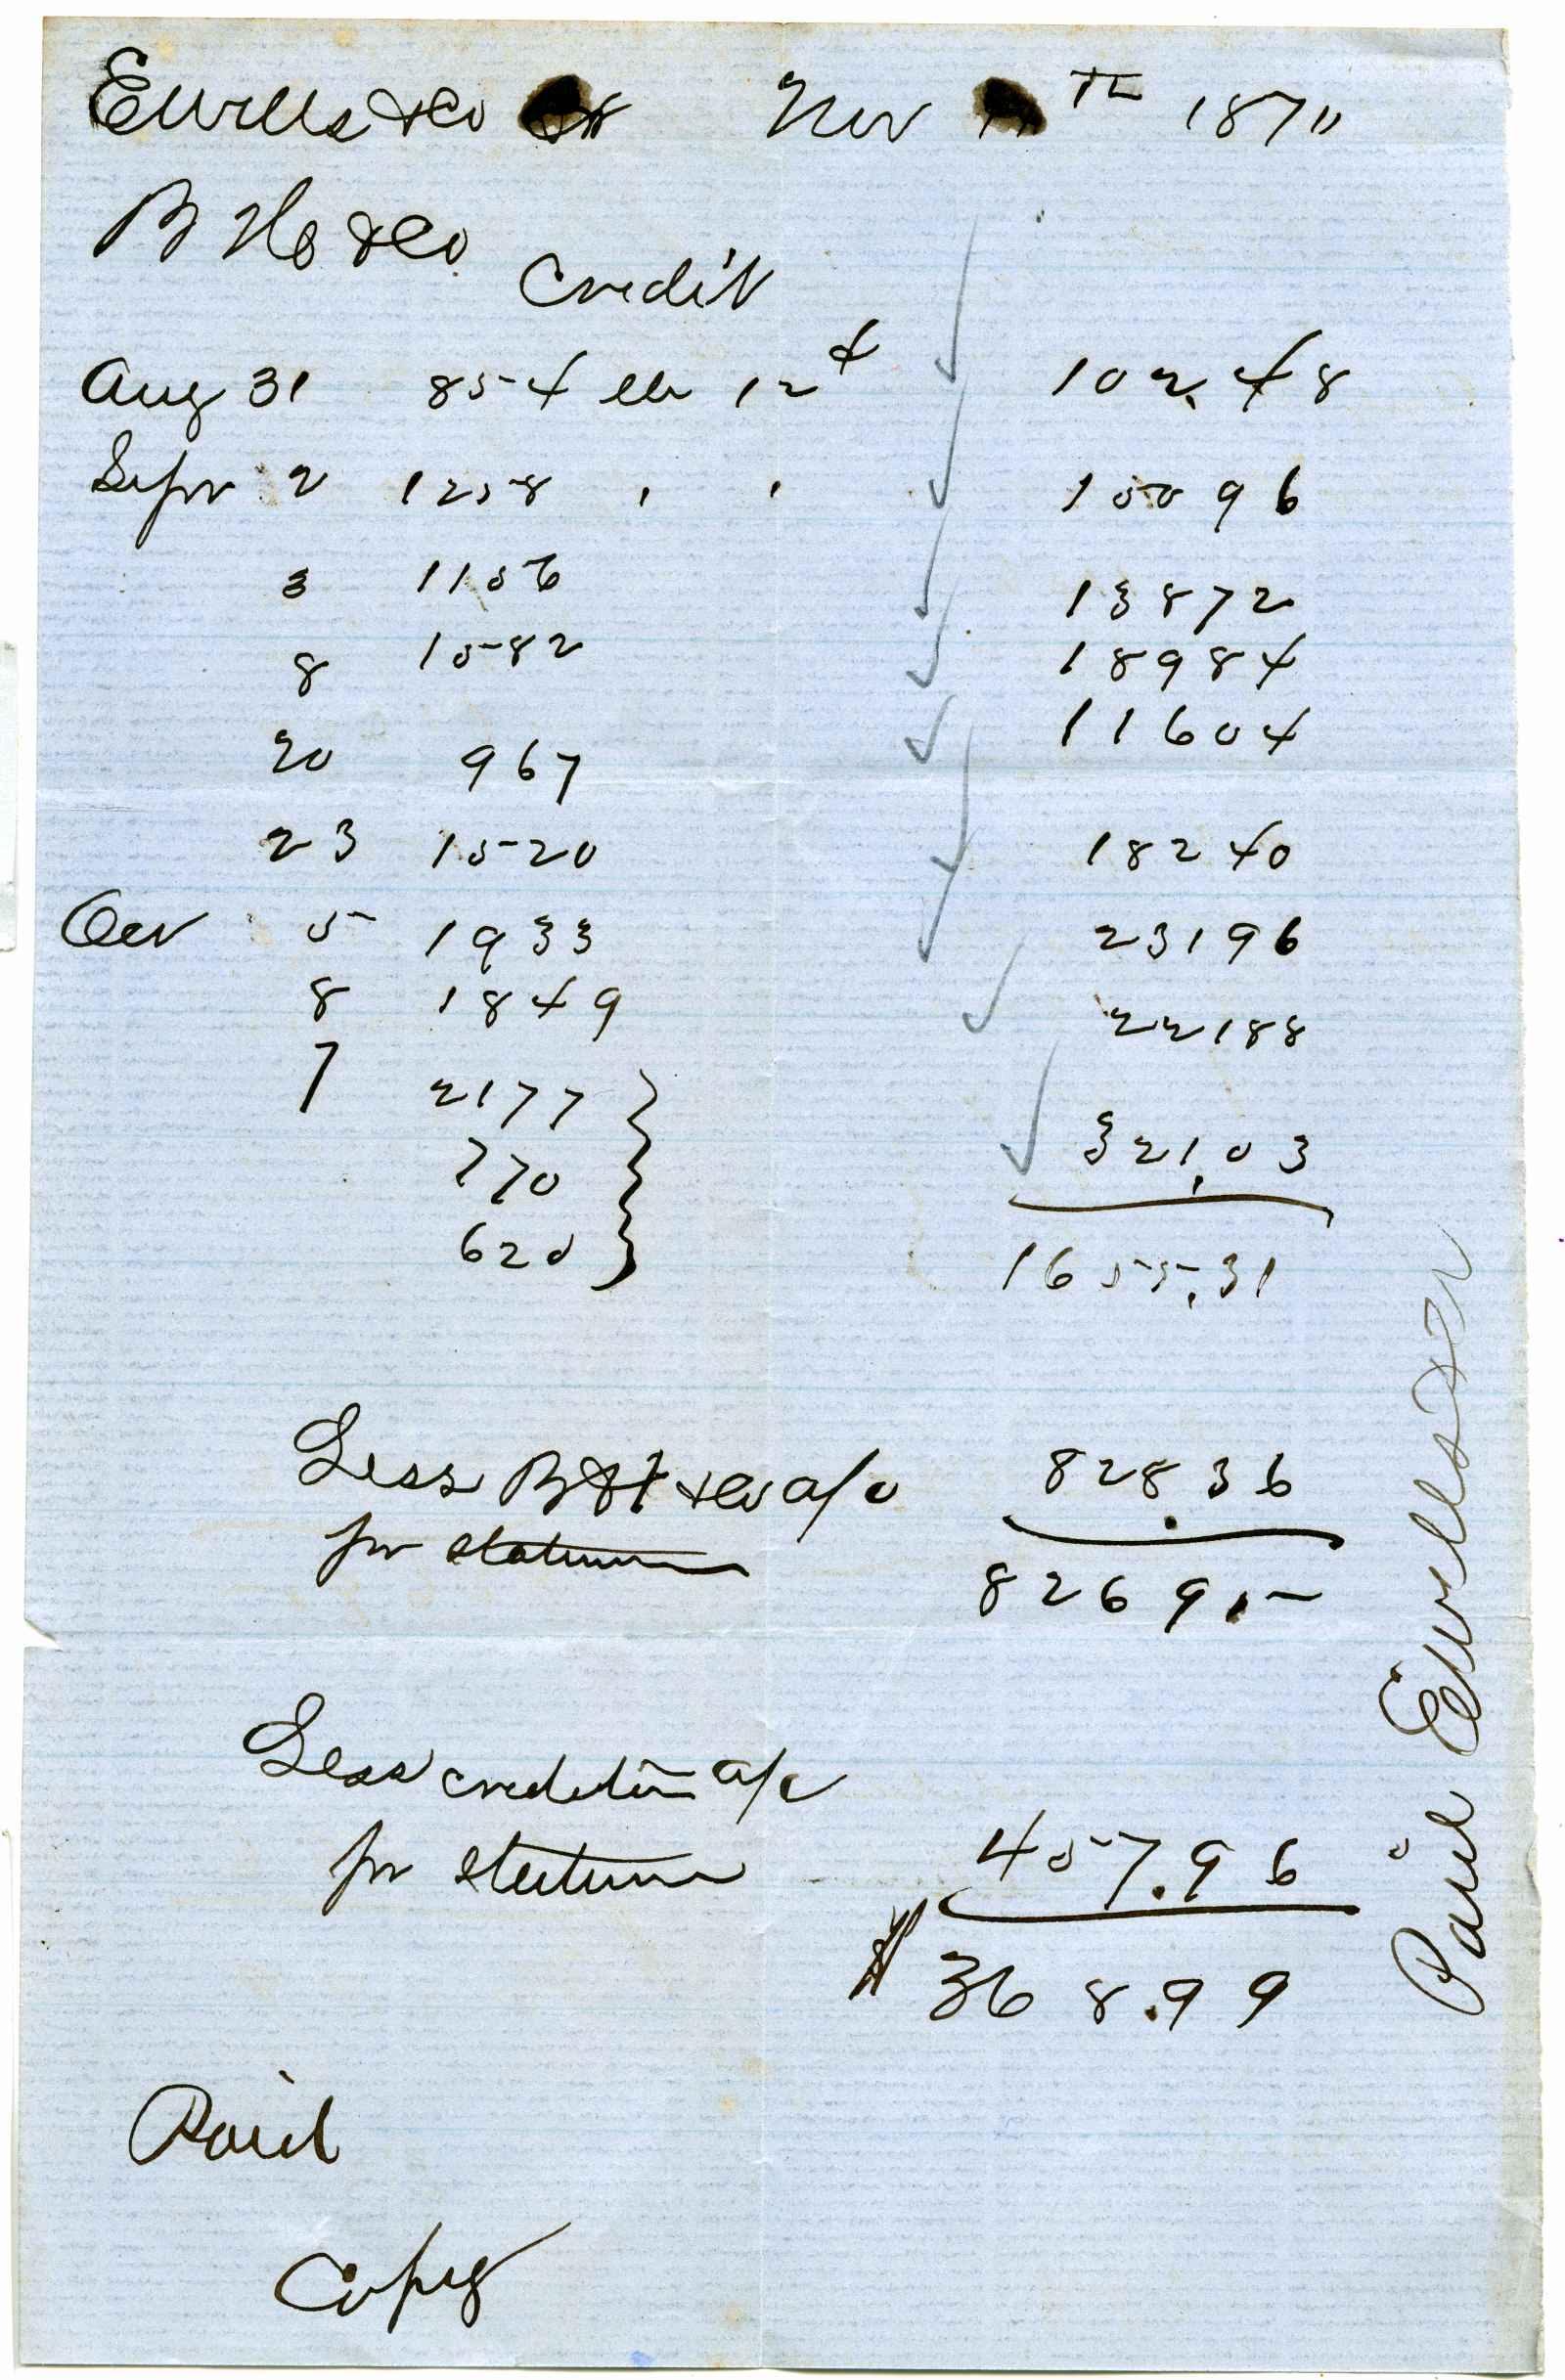 Ewells & Co Nov 11th 1870
B H & Co
Credit
Aug 31 854 lbs 12¢ 102.48
Sepr 2 1258 " " 150 96
3 1156 138 72
8 1582 189 84
20 967 116 04
23 1520 182 40
Oct 5 1933 231 96
8 1849 221 88
7 2177 }
770 } 321.03
620 }
1655.31
Less B H & Co a/c 828.36
pr statem
826 95
Less credit in a/c
pr statem 457.96
$ 368.99
Paid
Copy
Paid Ewells &